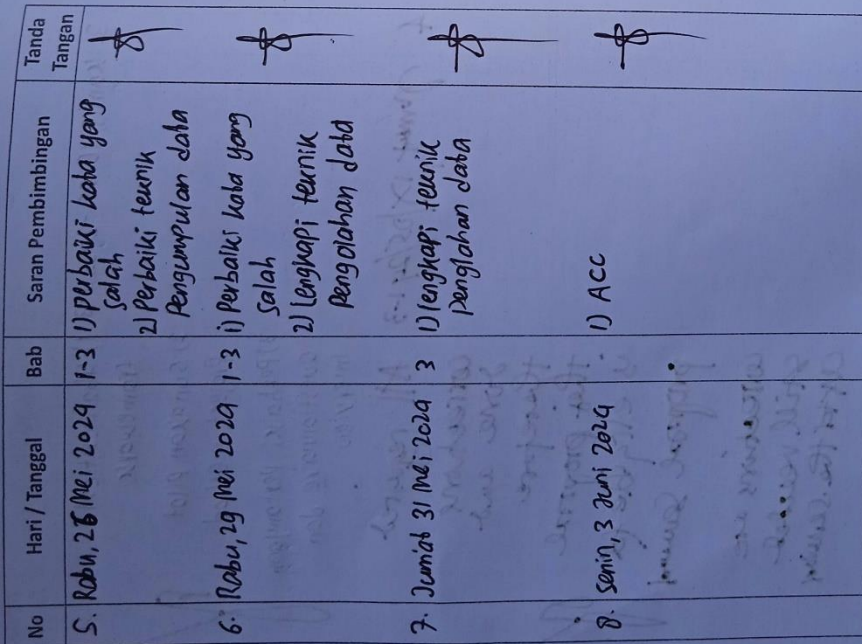 No Hari / Tanggal Bab Saran Pembimbingan Tanda Tangan
5. Rabu, 2 Mei 2024 1-3 1) perbaiki kata yang
salah
2) Perbaiki teknik
Pengumpulan data
6. Rabu, 29 Mei 2024 1-3 1) Perbaiki kata yang
salah
2) Lengkapi teknik
Pengolahan data
7. Jumat 31 Mei 2024 3 1) lengkapi teknik
penglahan data
8. Senin, 3 Juni 2024 1) ACC